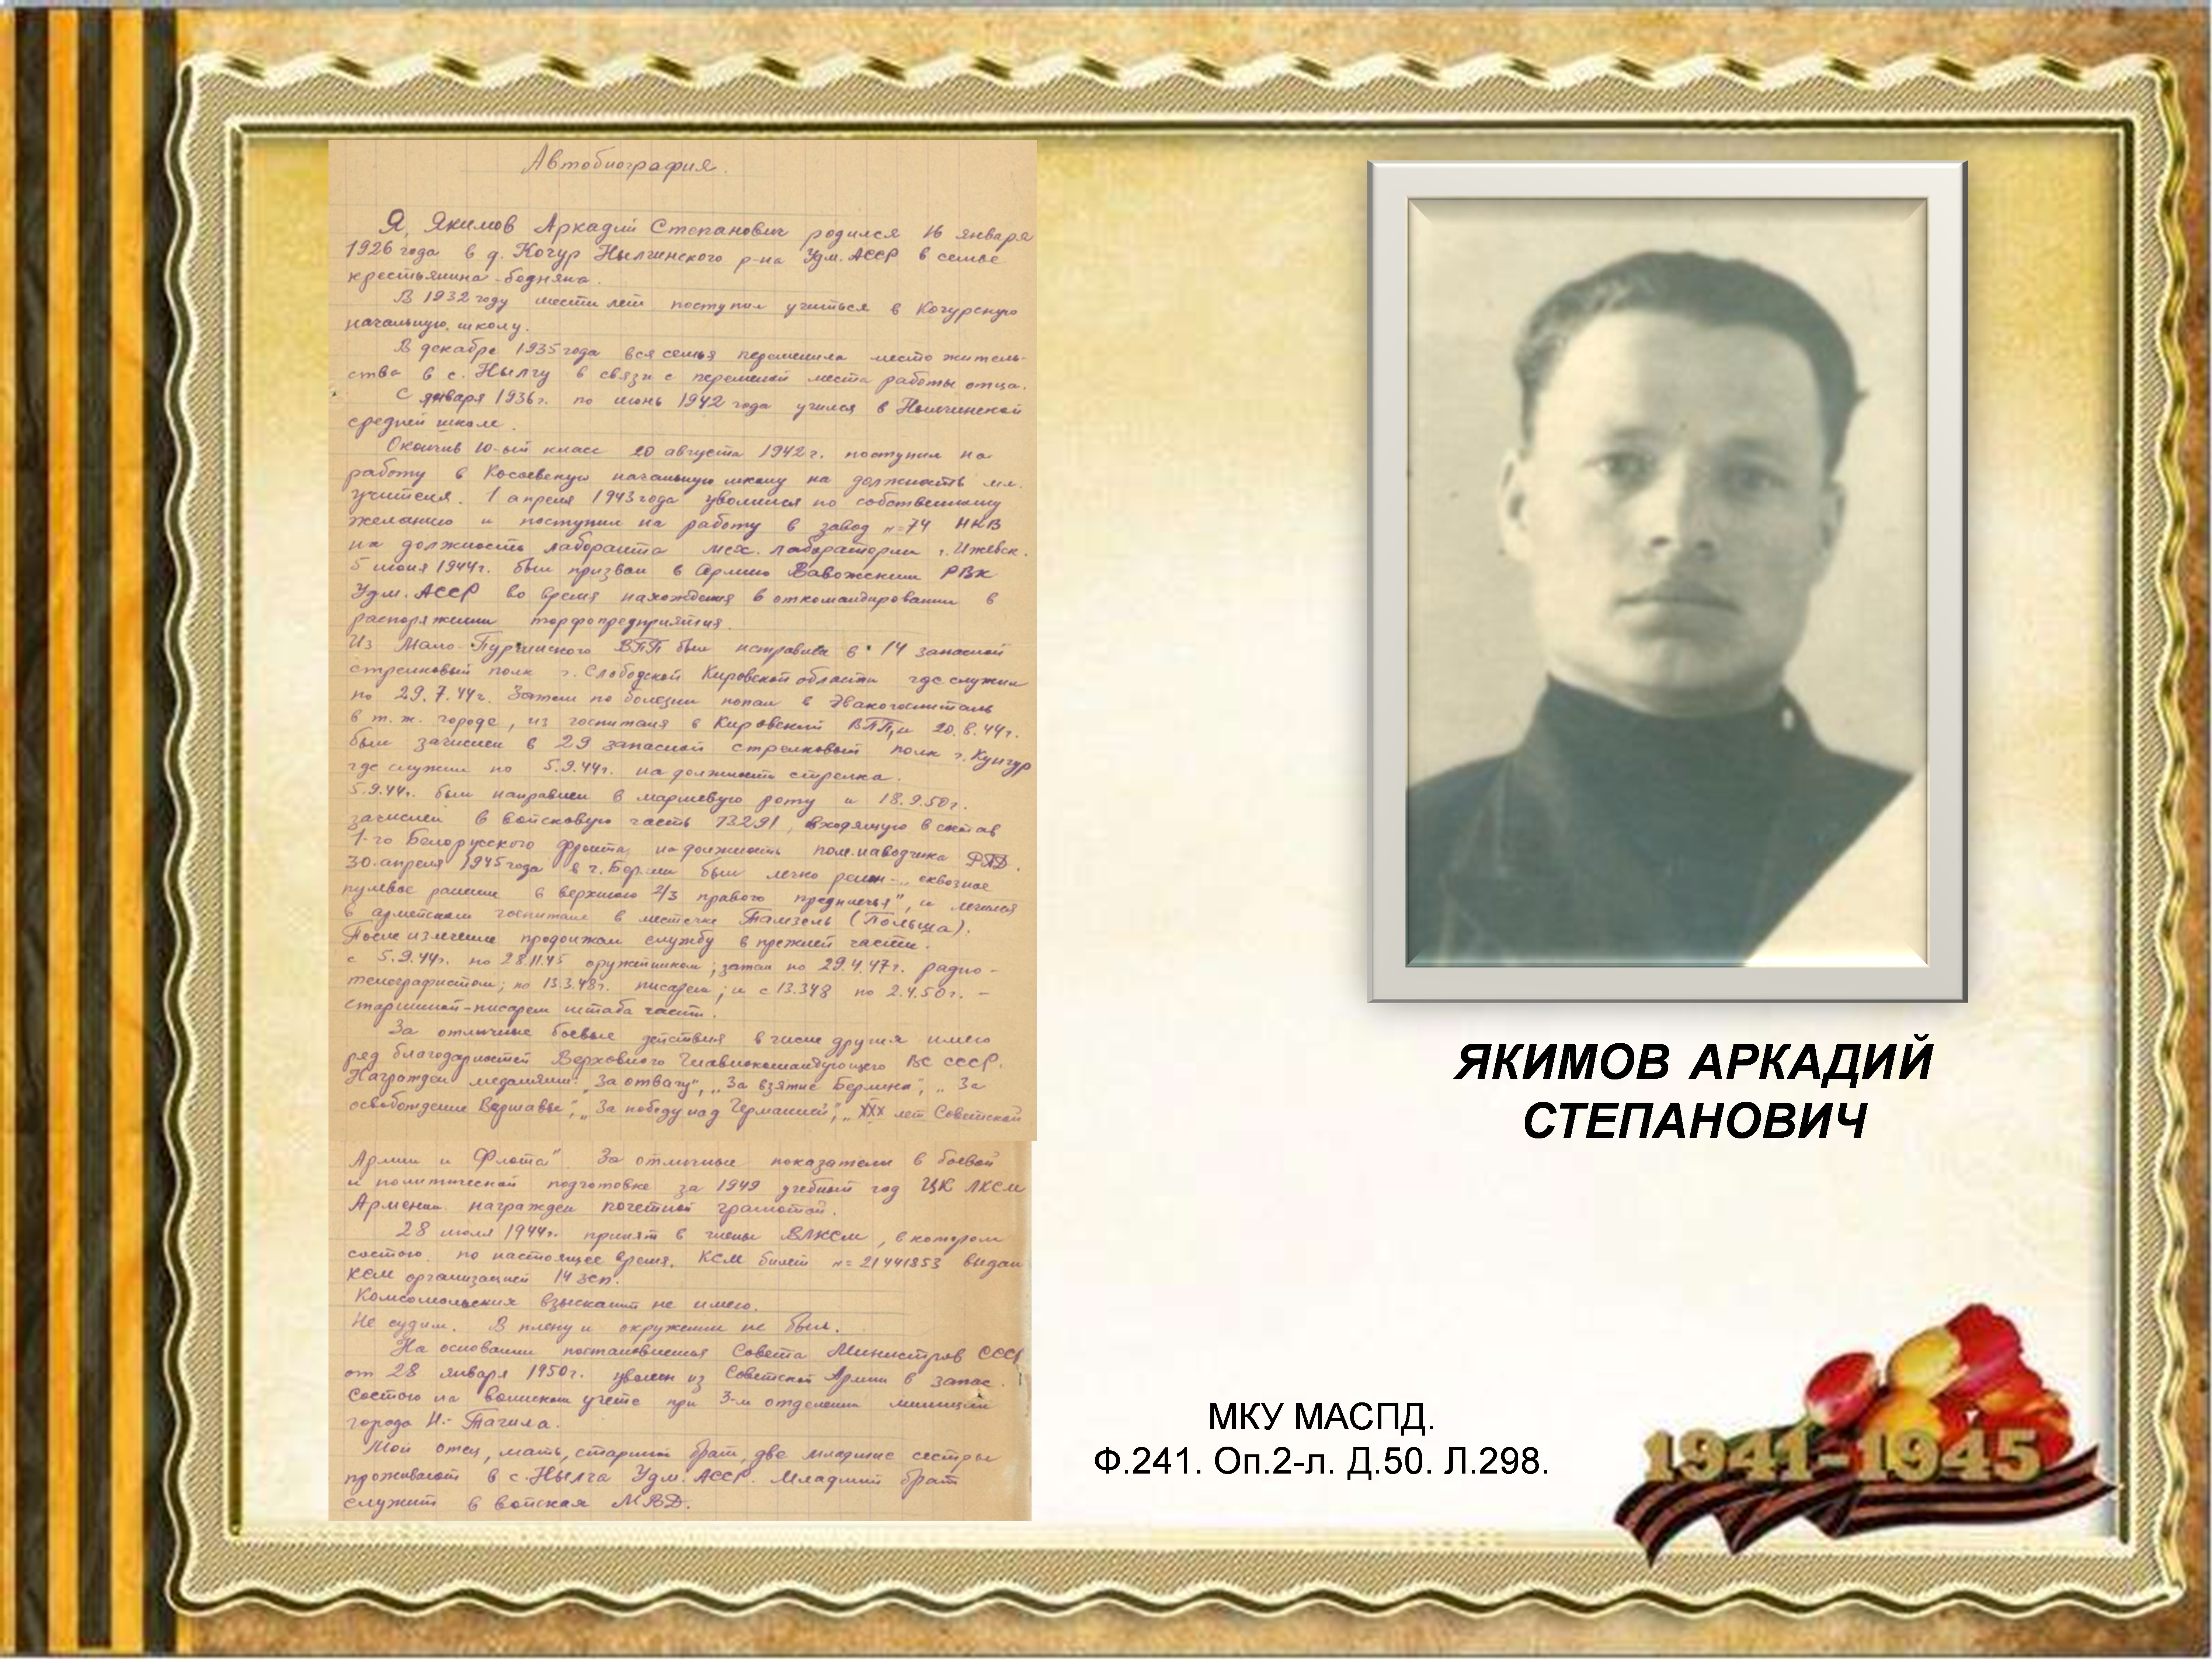 Автобиография.
Я, Якимов Аркадий Степанович родился 16 января
1926 года в д. Кочур Нылгинского р-на Удм. АССР в семье
крестьянина-бедняка.
В 1932 году шести лет поступил учиться в Кочурскую
начальную школу.
В декабре 1935 года вся семья переменила место житель-
ства в с. Нылгу в связи с переменой места работы отца.
С января 1936 г. по июнь 1942 года учился в Нылгинской
средней школе.
Окончив 10-ый класс 20 августа 1942 г. поступил на
работу в начальную школу на должность
учителя. 1 апреля 1943 года уволился по собственному
желанию и поступил на работу в завод №74 НКВ
на должность лаборанта мех. лаборатории г. Ижевск.
5 июня 1944 г. был призван в Армию Вавожским РВК
Удм. АССР во время нахождения в откомандировании в
распоряжении торфопредприятия.
Из Мало-Пургинского ВПП был направлен в 14 запасной
стрелковый полк г. Слободской Кировской области где служил
по 29.7.44г. Затем по болезни попал в Эвакогоспиталь
в т.ж. городе, из госпиталя в Кировский ВПП, и 20.8.44г.
был зачислен в 29 запасной стрелковый полк г. Кунгур
где служил по 5.9.44г. на должность стрелка.
5.9.44г. был направлен в маршевую роту и 18.9.50г.
зачислен в войсковую часть 73291, входящую в состав
1-го Белорусского фронта, на должность пом. наводчика
30 апреля 1945 года в г. Берлин был легко ранен - „сквозное
пулевое ранение в верхнюю 2/3 правого предплечья", и лечился
в армейском госпитале в местечке Тамзель (Польша).
После излечения продолжал службу в прежней части.
с 5.9.44г. по 28.11.45 оружейником; затем по 29.4.47г. радио-
телеграфистом; по 13.3.48г. писарем; и с 13.3.48 по 2.4.50г. -
старшиной-писарем штаба части.
За отличные боевые действия в числе других имею
ряд благодарностей Верховного Главнокомандующего ВС СССР.
Награжден медалями: „За отвагу", „За взятие Берлина", „За
освобождение Варшавы", „За победу над Германией", „XXX лет Советской
Армии и Флота". За отличные показатели в боевой
и политической подготовке за 1949 учебный год ЦК ЛКСМ
Армении награжден почетной грамотой.
28 июля 1944г. принят в члены ВЛКСМ, в котором
состою по настоящее время. КСМ билет №21441853 выдан
КСМ организацией 14 зсп.
Комсомольских взысканий не имею.
Не судим. В плену и окружении не был.
На основании постановления Совета Министров СССР
от 28 января 1950г. уволен из Советской Армии в запас.
Состою на воинском учете при 3-м отделении милиции
города Н.-Тагила.
Мой отец, мать, старший брат, две младшие сестры
проживают в с. Нылга Удм. АССР. Младший брат
служит в войсках МВД.
ЯКИМОВ АРКАДИЙ
СТЕПАНОВИЧ
МКУ МАСПД.
Ф.241. Оп.2-л. Д.50. Л.298.
1941-1945